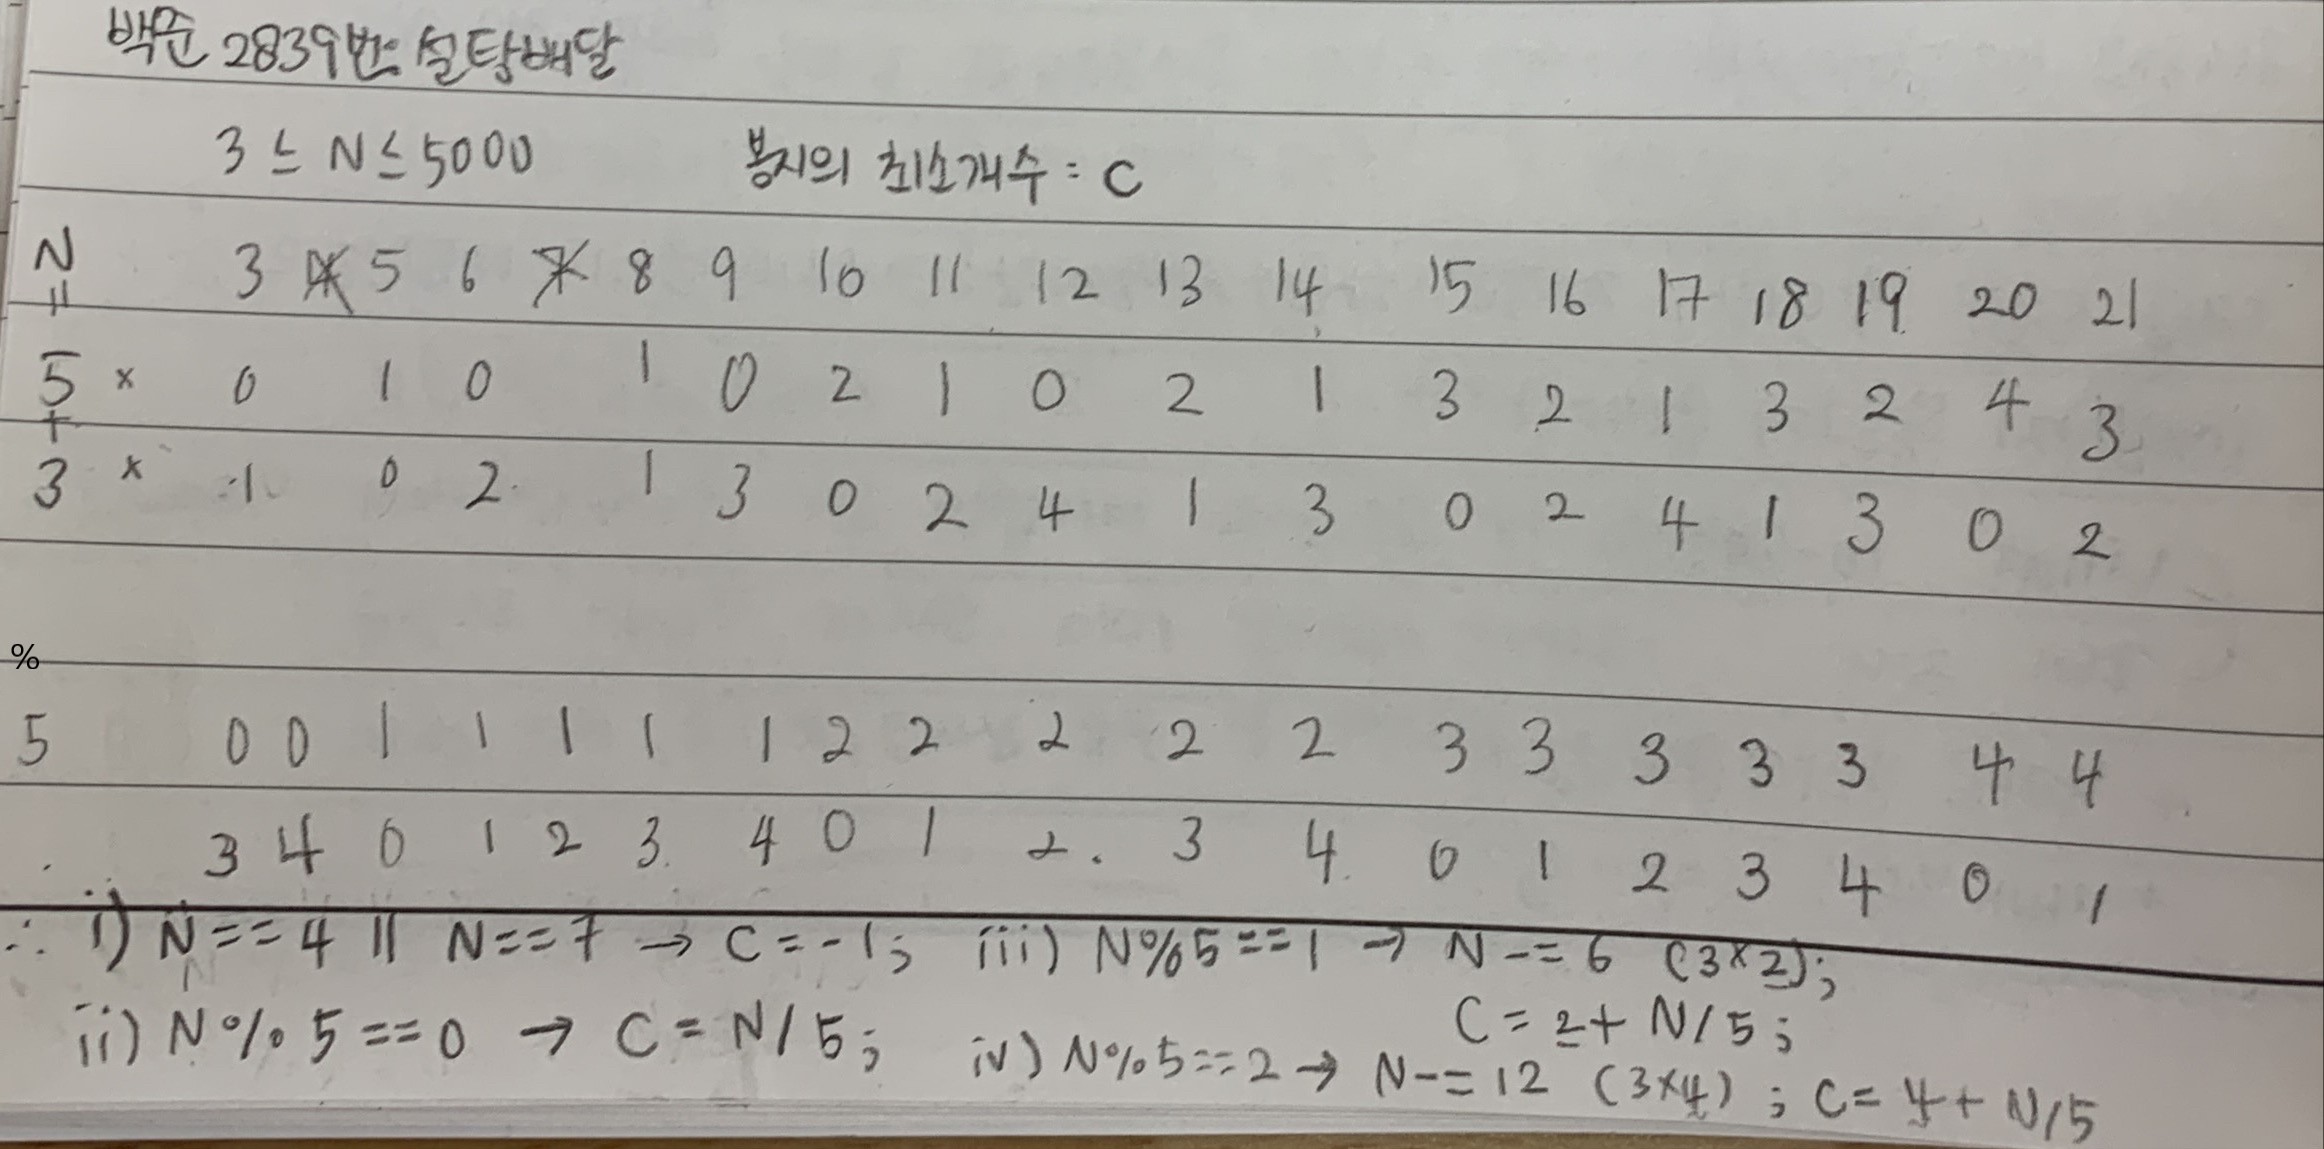 백준 2839번: 설탕배달
3 ≤ N ≤ 5000 봉지의 최소개수 : C
N 3 4 5 6 7 8 9 10 11 12 13 14 15 16 17 18 19 20 21
=
5 x 0 1 0 1 0 2 1 0 2 1 3 2 1 3 2 4 3
+
3 x 1 0 2 1 3 0 2 4 1 3 0 2 4 1 3 0 2
%
5 0 0 1 1 1 1 1 2 2 2 2 2 3 3 3 3 3 4 4
3 4 0 1 2 3 4 0 1 2 3 4 0 1 2 3 4 0 1
∴ i) N==4 || N==7 → C=-1; iii) N%5==1 → N-=6 (3x2);
C = 2+ N/5;
ii) N%5==0 → C = N/5; iv) N%5==2 → N-=12 (3x4) ; C= 4+ N/5